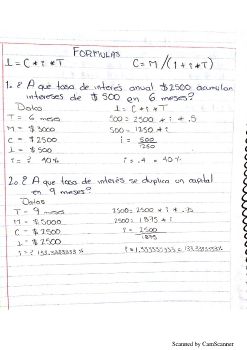 FORMULAS
I = C * i * T C = M /(1 + i * T)
1. ¿ A que tasa de interes anual $2500 acumulan
intereses de $500 en 6 meses?
Datos I = C * i * T
T = 6 meses 500 = 2500 * i * .5
M = $3000 500 = 1250 * i
C = $2500 i = 500/1250
I = $500
i = ? 40% i = .4 = 40%
2. ¿ A que tasa de interés se duplica un capital
en 9 meses?
Datos
T = 9 meses 2500 = 2500 * i * .75
M = $5000 2500 = 1875 * i
C = $2500 i = 2500/1875
I = $2500
i = ? 133.3333333% i = 1.33333333 = 133.333333%
Scanned by CamScanner